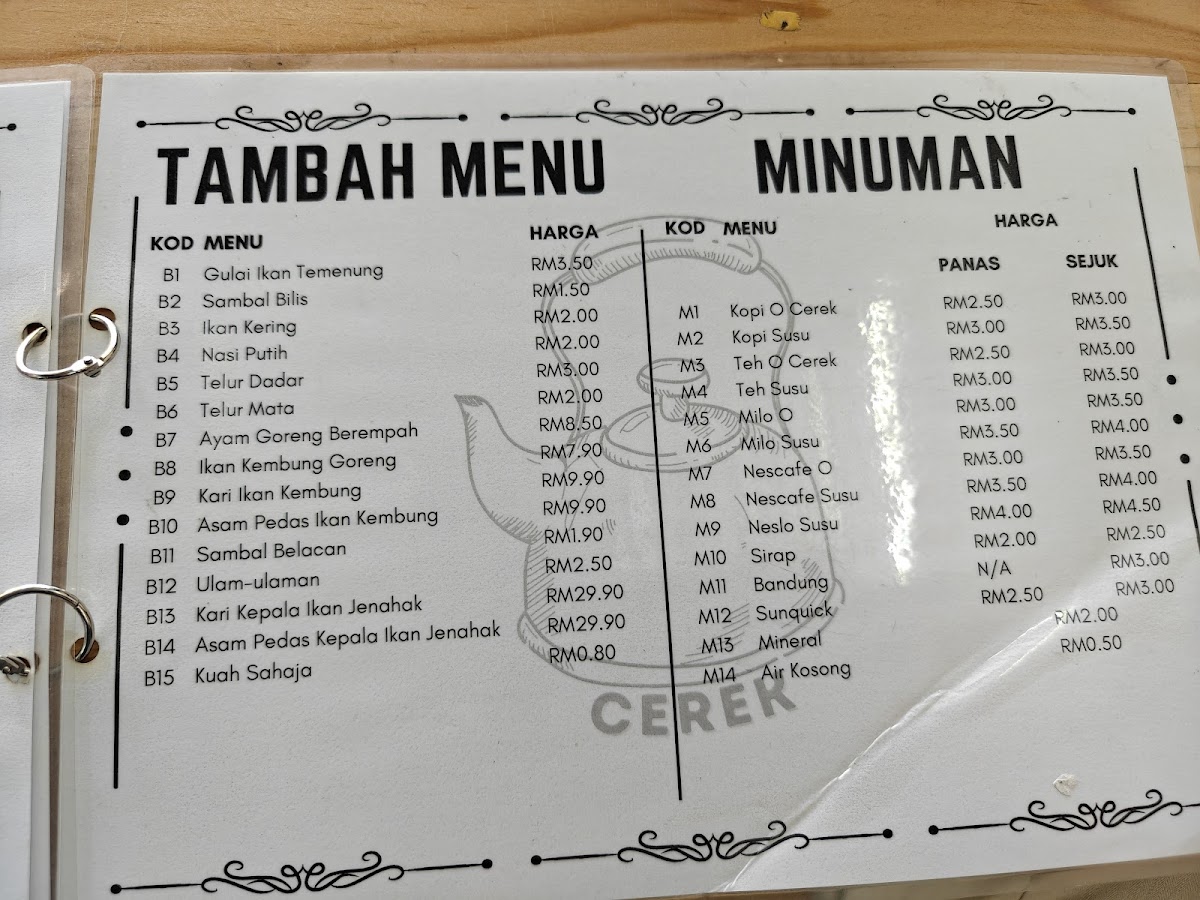 TAMBAH MENU
KOD MENU HARGA
B1 Gulai Ikan Temenung RM3.50
B2 Sambal Bilis RM1.50
B3 Ikan Kering RM2.00
B4 Nasi Putih RM2.00
B5 Telur Dadar RM3.00
B6 Telur Mata RM2.00
B7 Ayam Goreng Berempah RM8.50
B8 Ikan Kembung Goreng RM7.90
B9 Kari Ikan Kembung RM9.90
B10 Asam Pedas Ikan Kembung RM9.90
B11 Sambal Belacan RM1.90
B12 Ulam-ulaman RM2.50
B13 Kari Kepala Ikan Jenahak RM29.90
B14 Asam Pedas Kepala Ikan Jenahak RM29.90
B15 Kuah Sahaja RM0.80
MINUMAN
KOD MENU HARGA
PANAS SEJUK
M1 Kopi O Cerek RM2.50 RM3.00
M2 Kopi Susu RM3.00 RM3.50
M3 Teh O Cerek RM2.50 RM3.00
M4 Teh Susu RM3.00 RM3.50
M5 Milo O RM3.00 RM3.50
M6 Milo Susu RM3.50 RM4.00
M7 Nescafe O RM3.00 RM3.50
M8 Nescafe Susu RM3.50 RM4.00
M9 Neslo Susu RM4.00 RM4.50
M10 Sirap RM2.00 RM2.50
M11 Bandung N/A RM3.00
M12 Sunquick RM2.50 RM3.00
M13 Mineral RM2.00
M14 Air Kosong RM0.50
CEREK